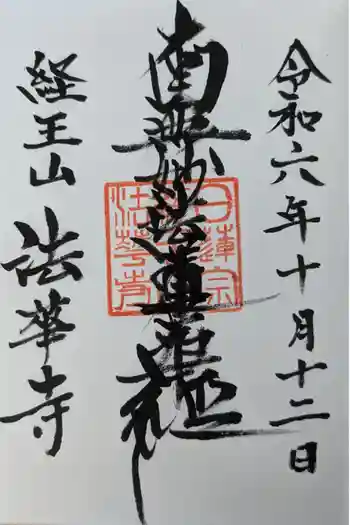 令和六年十月十二日
南無妙法蓮華経
日蓮宗
経王山
法華寺